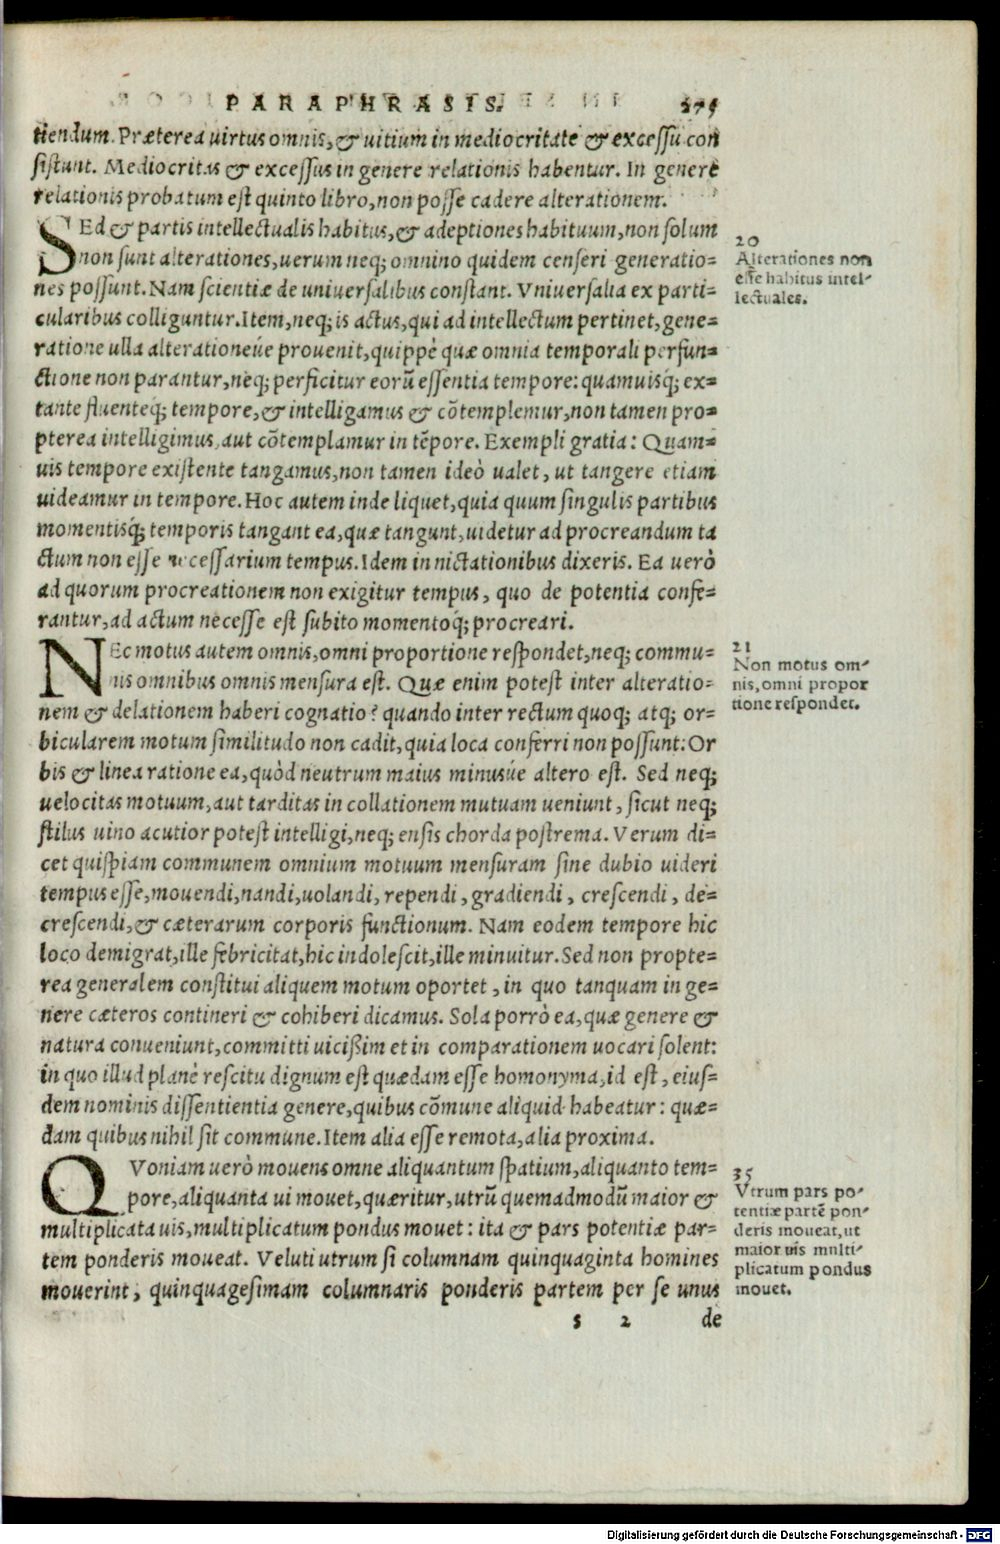 PARAPHRASIS. 275
tiendum. Præterea uirtus omnis, & uitium in mediocritate & excessu con
sistunt. Mediocritas & excessus in genere relationis habentur. In genere
relationis probatum est quinto libro, non posse cadere alterationem.
SEd & partis intellectualis habitus, & adeptiones habituum, non solum
non sunt alterationes, uerum neq; omnino quidem censeri generatio=
nes possunt. Nam scientiæ de uniuersalibus constant. Vniuersalia ex parti=
cularibus colliguntur. Item, neq; is actus, qui ad intellectum pertinet, gene=
ratione ulla alterationéue prouenit, quippè quæ omnia temporali perfun=
ctione non parantur, neq; perficitur eorũ essentia tempore: quamuisq́; ex=
tante fluenteq́; tempore, & intelligamus & cõtemplemur, non tamen pro=
pterea intelligimus, aut cõtemplamur in tẽpore. Exempli gratia: Quam=
uis tempore existente tangamus, non tamen ideò ualet, ut tangere etiam
uideamur in tempore. Hoc autem inde liquet, quia quum singulis partibus
momentisq́; temporis tangant ea, quæ tangunt, uidetur ad procreandum ta
ctum non esse necessarium tempus. Idem in nictationibus dixeris. Ea uerò
ad quorum procreationem non exigitur tempus, quo de potentia confe=
rantur, ad actum necesse est subito momentoq́; procreari.
NEc motus autem omnis, omni proportione respondet, neq; commu=
nis omnibus omnis mensura est. Quæ enim potest inter alteratio=
nem & delationem haberi cognatio? quando inter rectum quoq; atq; or=
bicularem motum similitudo non cadit, quia loca conferri non possunt: Or
bis & linea ratione ea, quòd neutrum maius minusúe altero est. Sed neq;
uelocitas motuum, aut tarditas in collationem mutuam ueniunt, sicut neq;
stilus uino acutior potest intelligi, neq; ensis chorda postrema. Verum di=
cet quispiam communem omnium motuum mensuram sine dubio uideri
tempus esse, mouendi, nandi, uolandi, rependi, gradiendi, crescendi, de=
crescendi, & cæterarum corporis functionum. Nam eodem tempore hic
loco demigrat, ille febricitat, hic indolescit, ille minuitur. Sed non propte=
rea generalem constitui aliquem motum oportet, in quo tanquam in ge=
nere cæteros contineri & cohiberi dicamus. Sola porrò ea, quæ genere &
natura conueniunt, committi uicißim et in comparationem uocari solent:
in quo illud planè rescitu dignum est quædam esse homonyma, id est, eius=
dem nominis dissentientia genere, quibus cõmune aliquid habeatur: quæ=
dam quibus nihil sit commune. Item alia esse remota, alia proxima.
QVoniam uerò mouens omne aliquantum spatium, aliquanto tem=
pore, aliquanta ui mouet, quæritur, utrũ quemadmodũ maior &
multiplicata uis, multiplicatum pondus mouet: ita & pars potentiæ par=
tem ponderis moueat. Veluti utrum si columnam quinquaginta homines
mouerint, quinquagesimam columnaris ponderis partem per se unus
s 2 de
20
Alterationes non
esse habitus intel-
lectuales.
21
Non motus om-
nis, omni propor
tione respondet.
35
Vtrum pars po-
tentiæ partẽ pon-
deris moueat, ut
maior uis multi-
plicatum pondus
mouet.
Digitalisierung gefördert durch die Deutsche Forschungsgemeinschaft - DFG